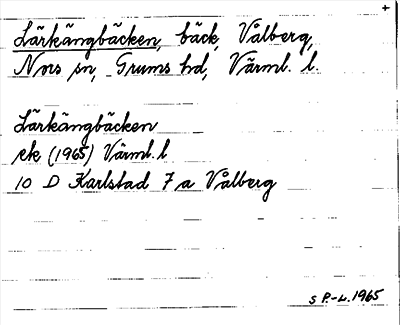 +
Lärkängbäcken, bäck, Vålberg,
Nors sn, Grums hd, Värml. l.
Lärkängbäcken
ek (1965) Värml. l
10 D Karlstad 7 a Vålberg
S P.-L. 1965